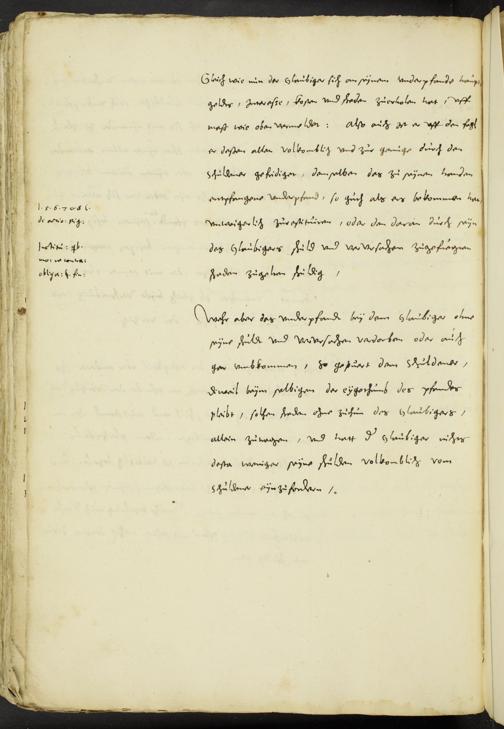 Gleich wie nun der Glaubiger sich an seynem underpfande haupt
gelds, Interesse, kosten und schaden zuerholen hat, uff
maß wie oben vermeldet: Also auch ist er uff den fahl
er dessen allen volkomblich und zur genüge durch den
Schuldener gefridiget, demselben das zu seynen handen
empfangene underpfand, so guth als ers bekommen
unweigerlich zu restituiren, oder den daran durch seyn
des Glaubigers schuld und verursachen zugefuegten
schaden zugelten schuldig,
Wehr aber das underpfandt bey dem Glaubiger ohne
seyne schuld und verursachen verdorben oder auch
gar umbkommen, So gepuert dem Schuldener,
dieweil beym selbigen der eygethumb des pfandes
pleibt, solchen schaden ohne zuthun des Glaubigers,
allein zutragen, und hatt der Glaubiger nichts
desta weniger seyne schulden volkomblich vom
Schuldener eynzufordern
de actio: pig:
Institu: qb:
mo: re contra:
obliga: §. fin: